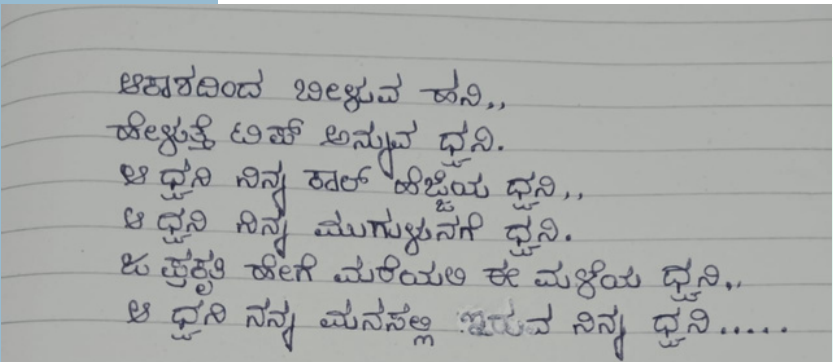 ಆಕಾಶದಿಂದ ಬೀಳುವ ಹನಿ,,
ಹೇಳುತ್ತೆ ಟಿಪ್ ಅನ್ನುವ ಧ್ವನಿ.
ಆ ಧ್ವನಿ ನಿನ್ನ ಕಾಲ್ ಹೆಜ್ಜೆಯ ಧ್ವನಿ,,
ಆ ಧ್ವನಿ ನಿನ್ನ ಮುಗುಳುನಗೆ ಧ್ವನಿ.
ಪ್ರಕೃತಿ ಹೇಗೆ ಮರೆಯಲಿ ಈ ಮಳೆಯ ಧ್ವನಿ..
ಆ ಧ್ವನಿ ನನ್ನ ಮನಸಲ್ಲಿ ಇರುವ ನಿನ್ನ ಧ್ವನಿ.....